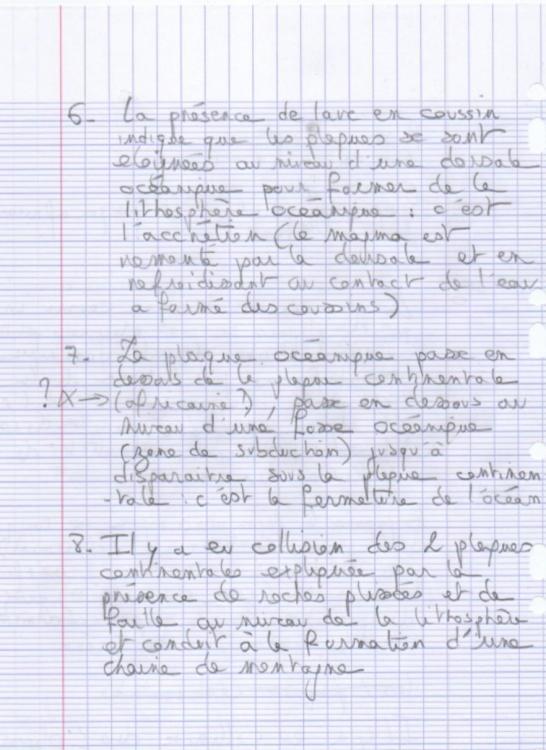 6- La présence de lave en coussin
indique que les plaques se sont
éloignées au niveau d'une dorsale
océanique pour former de la
lithosphère océanique : c'est
l'accrétion (le magma est
remonté par la dorsale et en
refroidisant au contact de l'eau
a formé des coussins)
7- La plaque océanique passe en
dessous de la plaque continentale
? X → (africaine?) passe en dessous au
niveau d'une fosse océanique
(zone de subduction) jusqu'à
disparaitre sous la plaque continen
-tale : c'est la fermeture de l'océan
8- Il y a eu collision des 2 plaques
continentales expliquée par la
présence de roches plissées et de
faille au niveau de la lithosphère
et conduit à la formation d'une
chaine de montagne